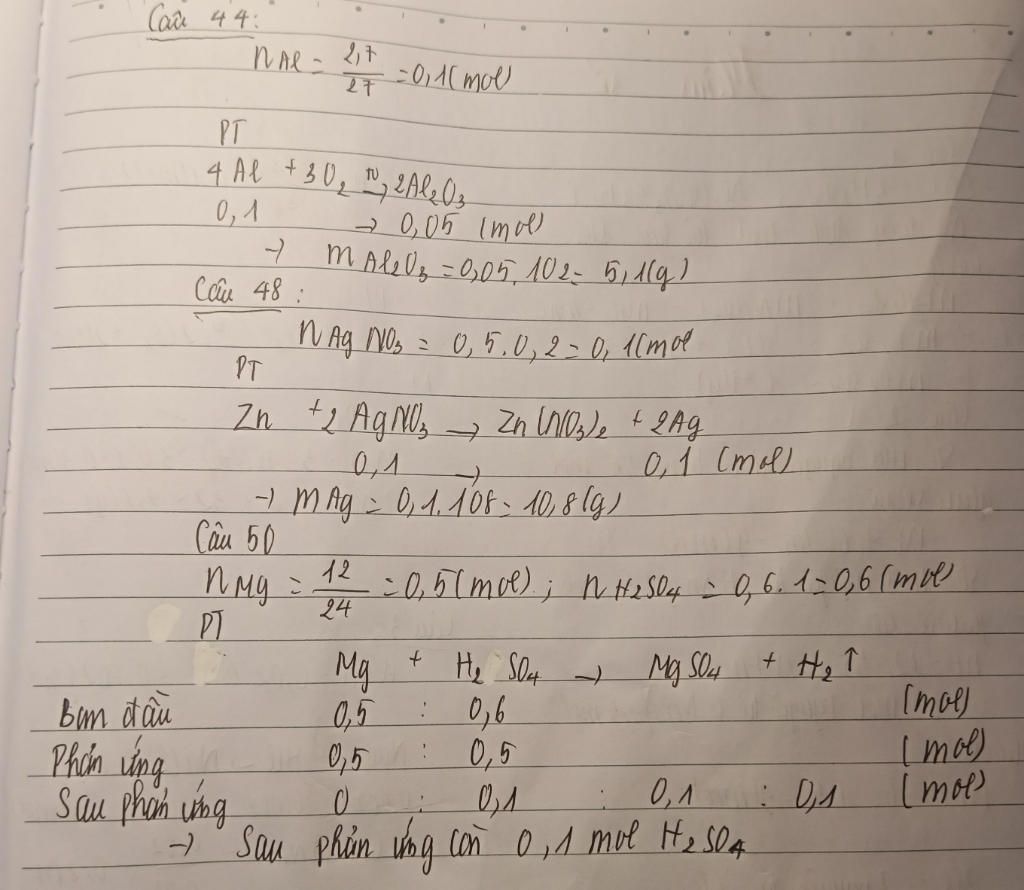 Câu 44:
n Al = 2,7/27 = 0,1(mol)
PT
4Al + 3O₂ →(t°) 2Al₂O₃
0,1 → 0,05 (mol)
→ m Al₂O₃ = 0,05.102 = 5,1(g)
Câu 48:
n AgNO₃ = 0,5.0,2 = 0,1(mol
PT
Zn + 2AgNO₃ → Zn(NO₃)₂ + 2Ag
0,1 → 0,1 (mol)
→ m Ag = 0,1.108 = 10,8(g)
Câu 50
n Mg = 12/24 = 0,5(mol); n H₂SO₄ = 0,6.1 = 0,6(mol)
PT
Mg + H₂SO₄ → MgSO₄ + H₂↑
Ban đầu 0,5 : 0,6 (mol)
Phản ứng 0,5 : 0,5 (mol)
Sau phản ứng 0 : 0,1 : 0,1 : 0,1 (mol)
→ Sau phản ứng còn 0,1 mol H₂SO₄